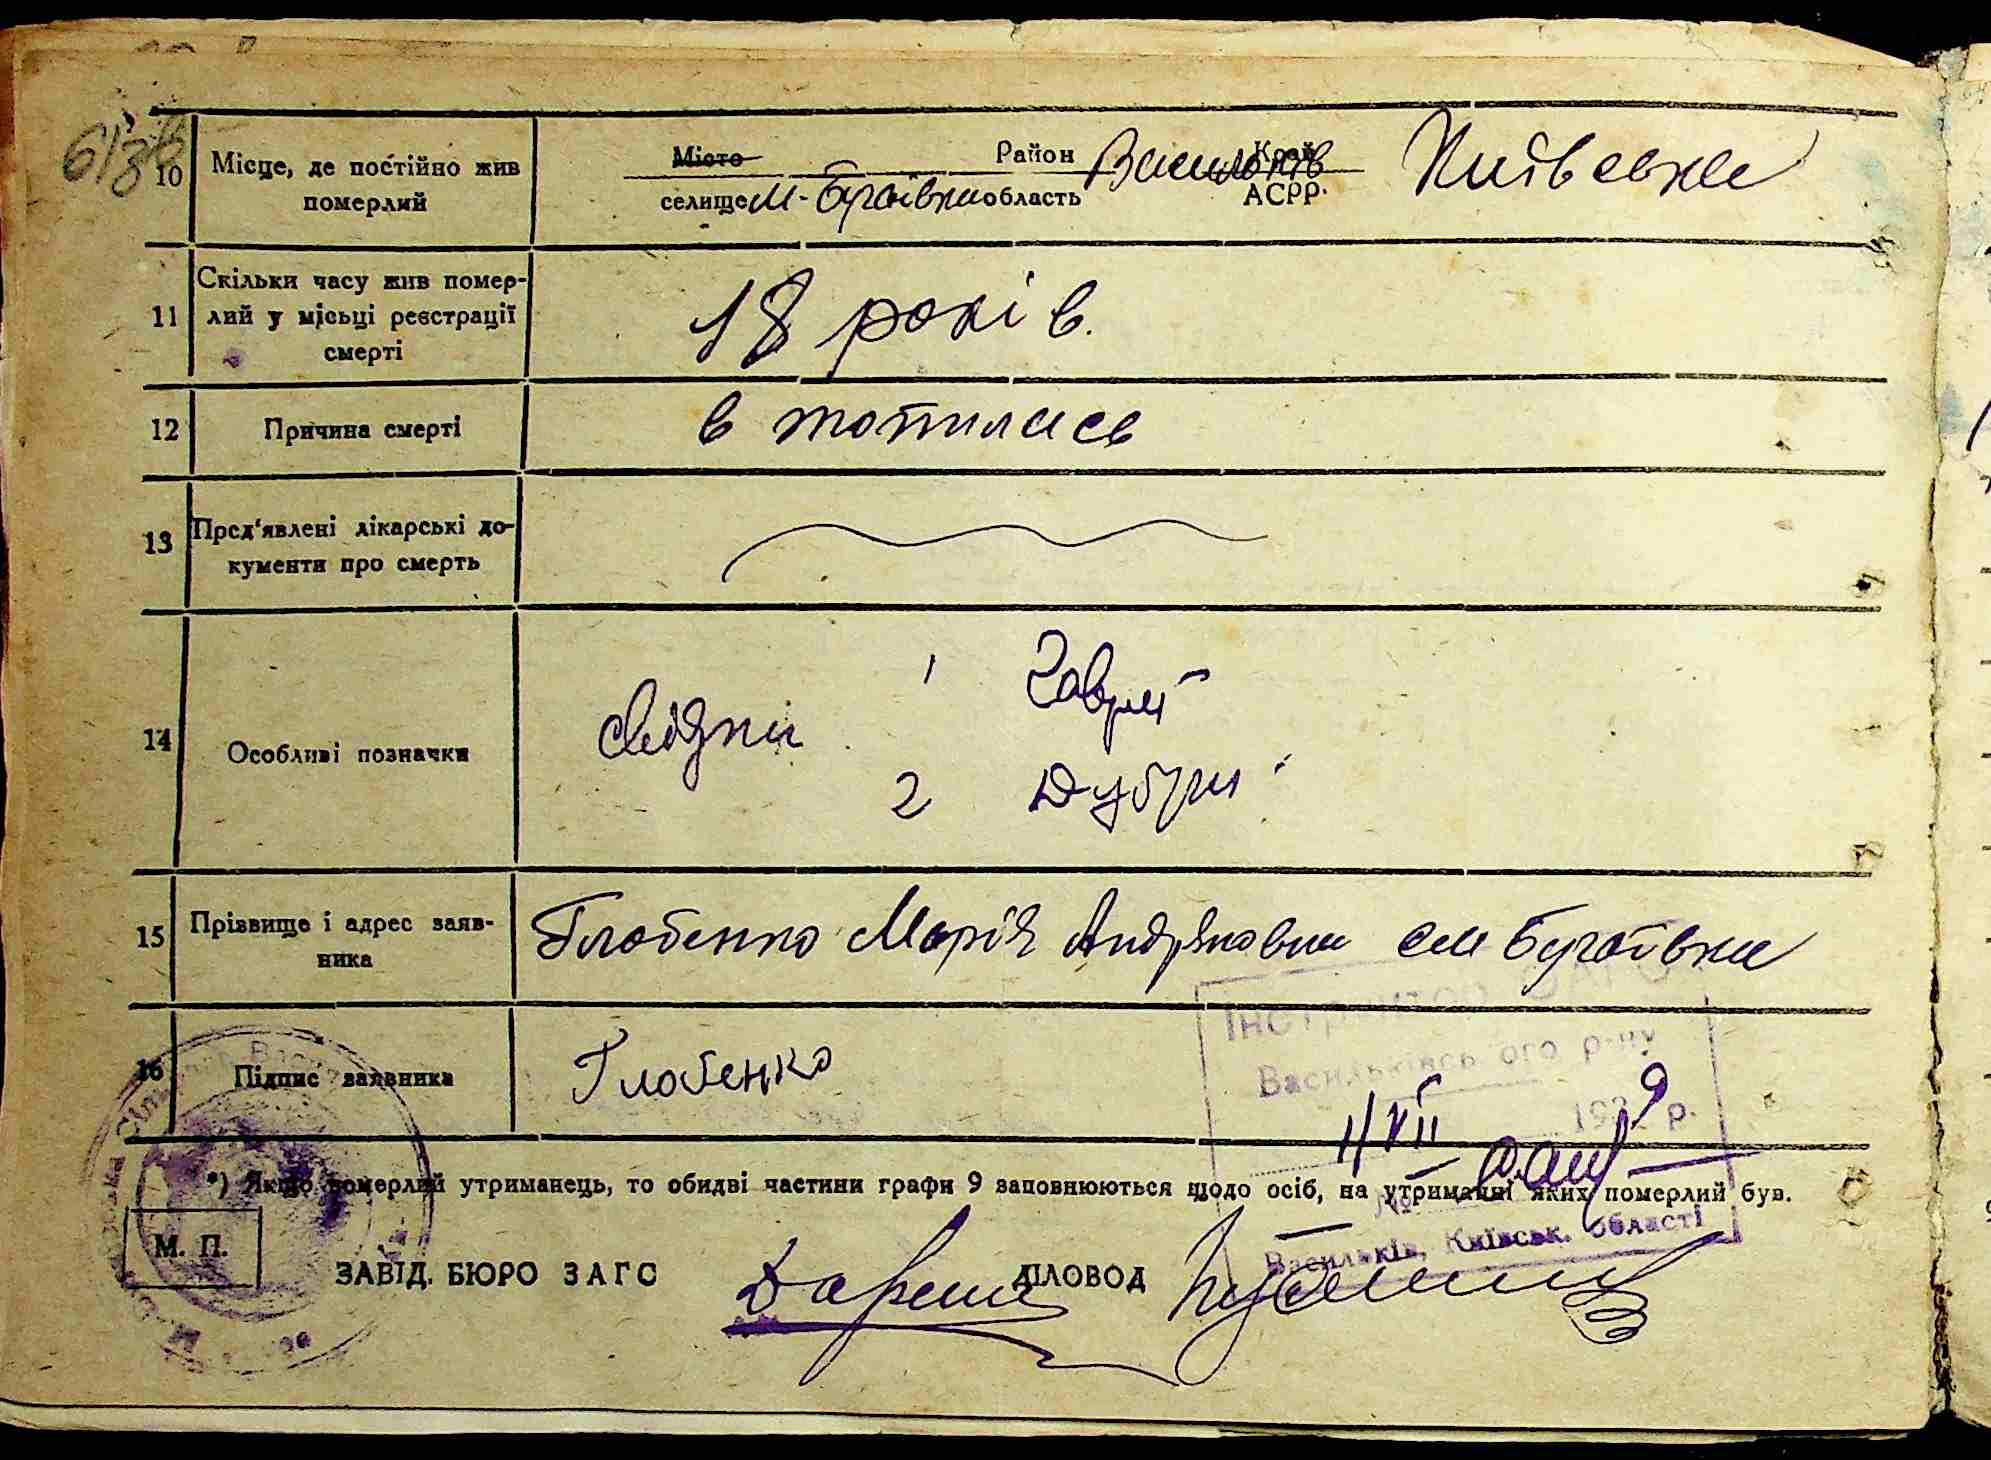 10 Місце, де постійно жив
померлий
Місто Район Край
селище м-Бугаївка область Васильків АСРР. Київська
11 Скільки часу жив помер-
лий у місьці реєстрації
смерті
18 років.
12 Причина смерті
в топилась
13 Пред'явлені лікарські до-
кументи про смерть
14 Особливі позначки
свідки 1
2
15 Прізвище і адрес заяв-
ника
Глобенко Марія Андріковна см Бугаївка
16 Підпис заявника
Глобенко
Інструктор ЗАГС
Васильківсь ого р-ну
11 VII 193 9 р.
Васильків, Київськ. області
*) Якщо померлий утриманець, то обидві частини графи 9 заповнюються щодо осіб, на утриманні яких померлий був.
М. П.
ЗАВІД. БЮРО ЗАГС
ДІЛОВОД